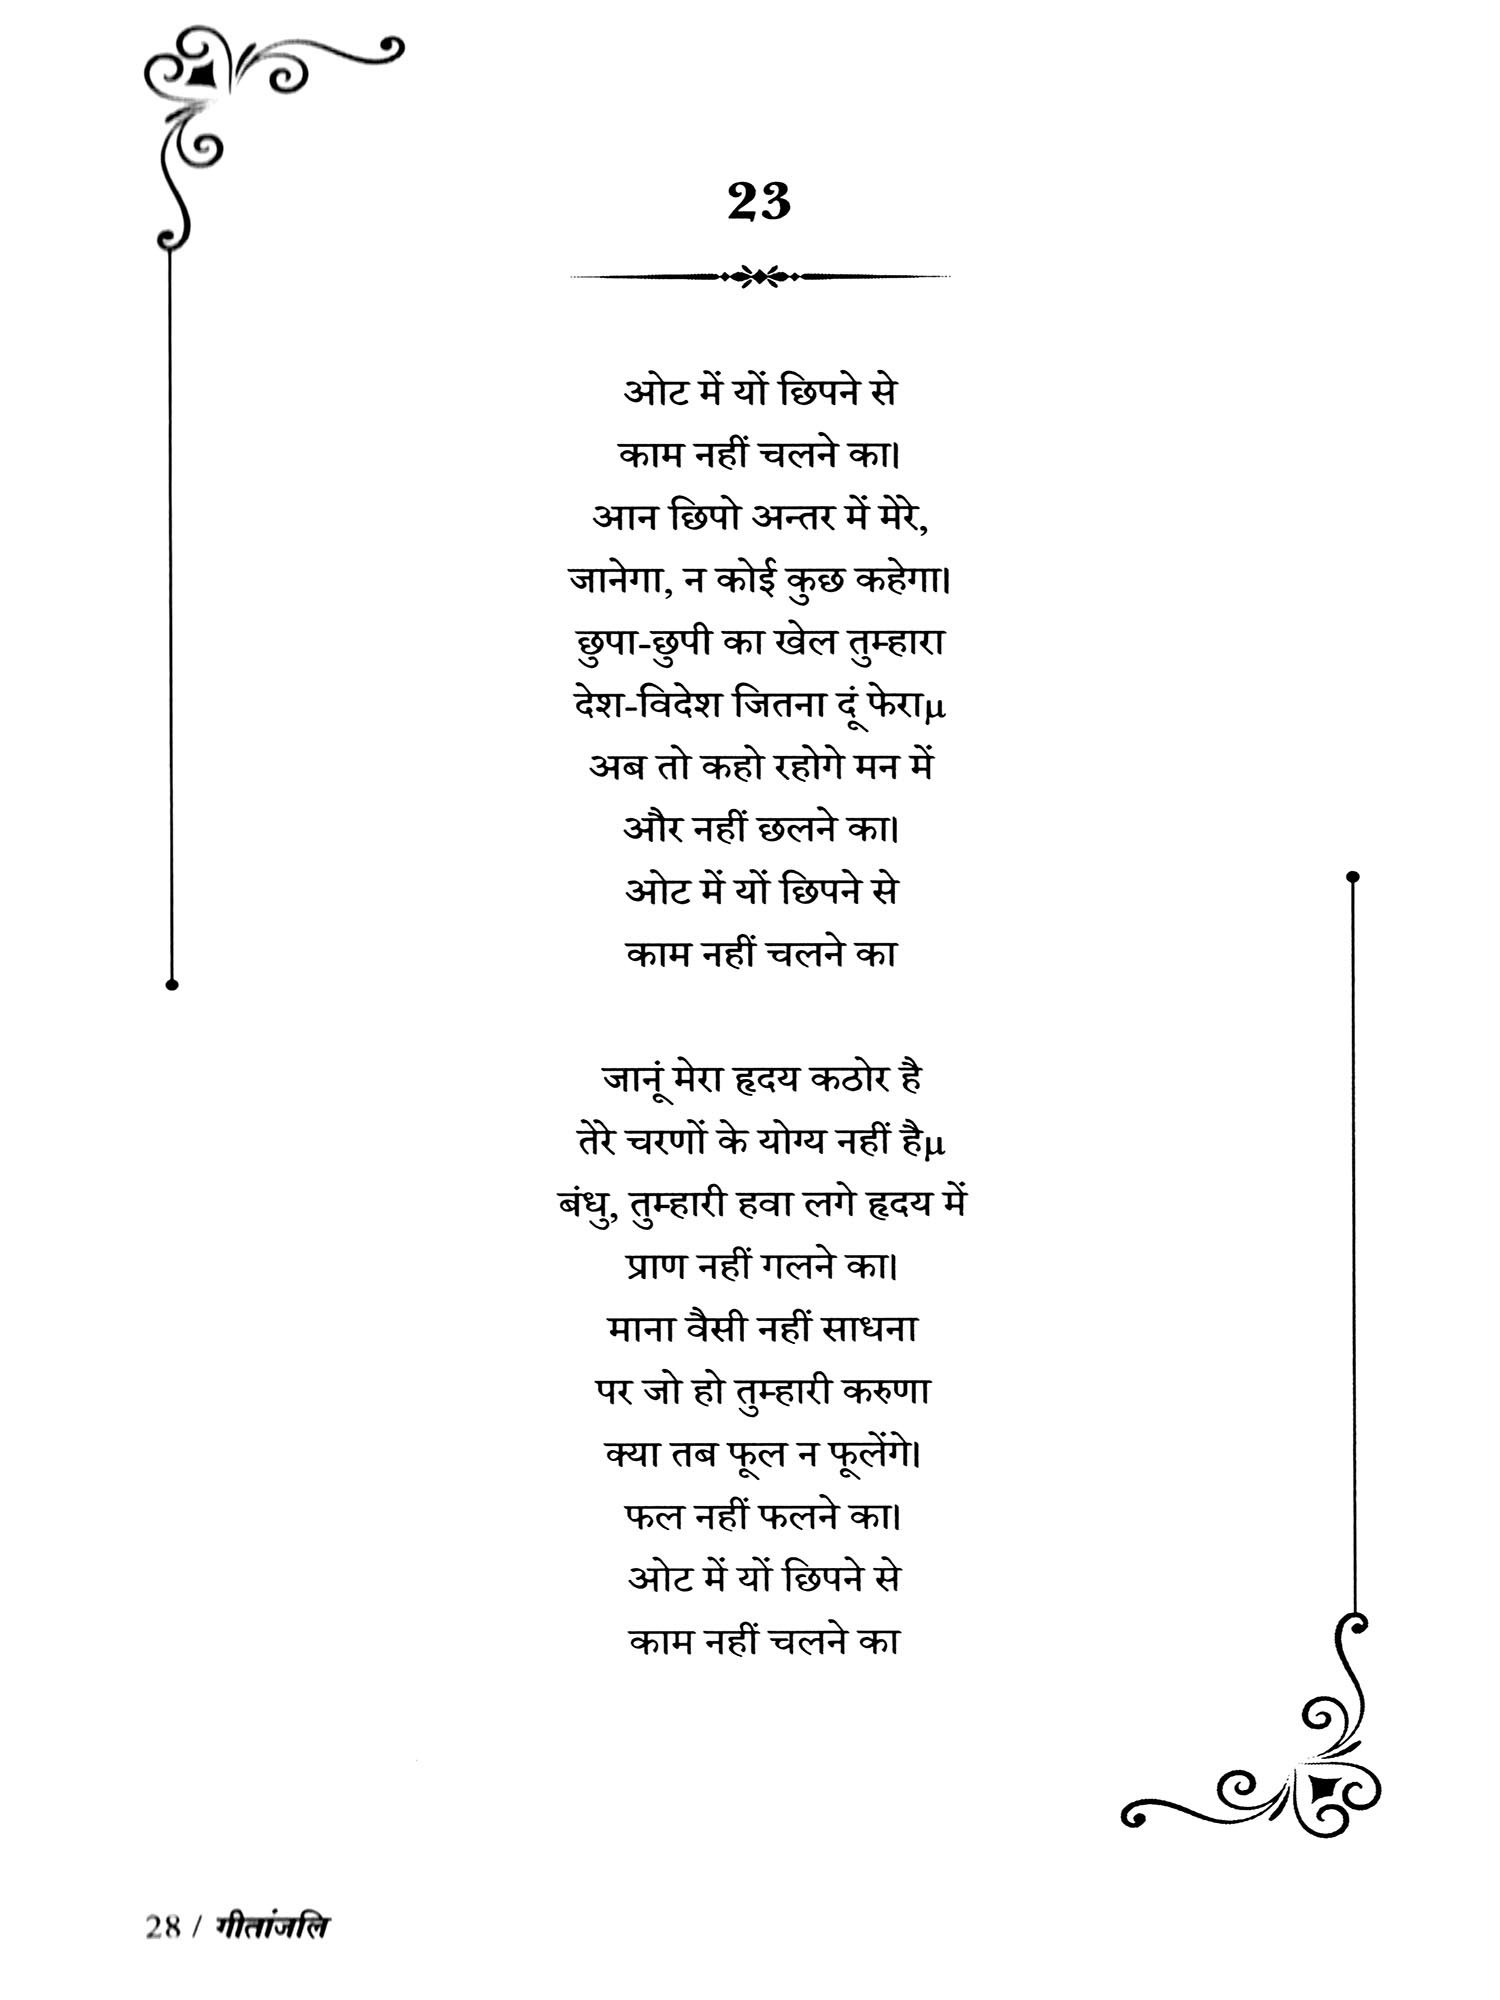 23
ओट में यों छिपने से
काम नहीं चलने का।
आन छिपो अन्तर में मेरे,
जानेगा, न कोई कुछ कहेगा।
छुपा-छुपी का खेल तुम्हारा
देश-विदेश जितना दूं फेराµ
अब तो कहो रहोगे मन में
और नहीं छलने का।
ओट में यों छिपने से
काम नहीं चलने का
जानूं मेरा हृदय कठोर है
तेरे चरणों के योग्य नहीं हैµ
बंधु, तुम्हारी हवा लगे हृदय में
प्राण नहीं गलने का।
माना वैसी नहीं साधना
पर जो हो तुम्हारी करुणा
क्या तब फूल न फूलेंगे।
फल नहीं फलने का।
ओट में यों छिपने से
काम नहीं चलने का
28 / गीतांजलि